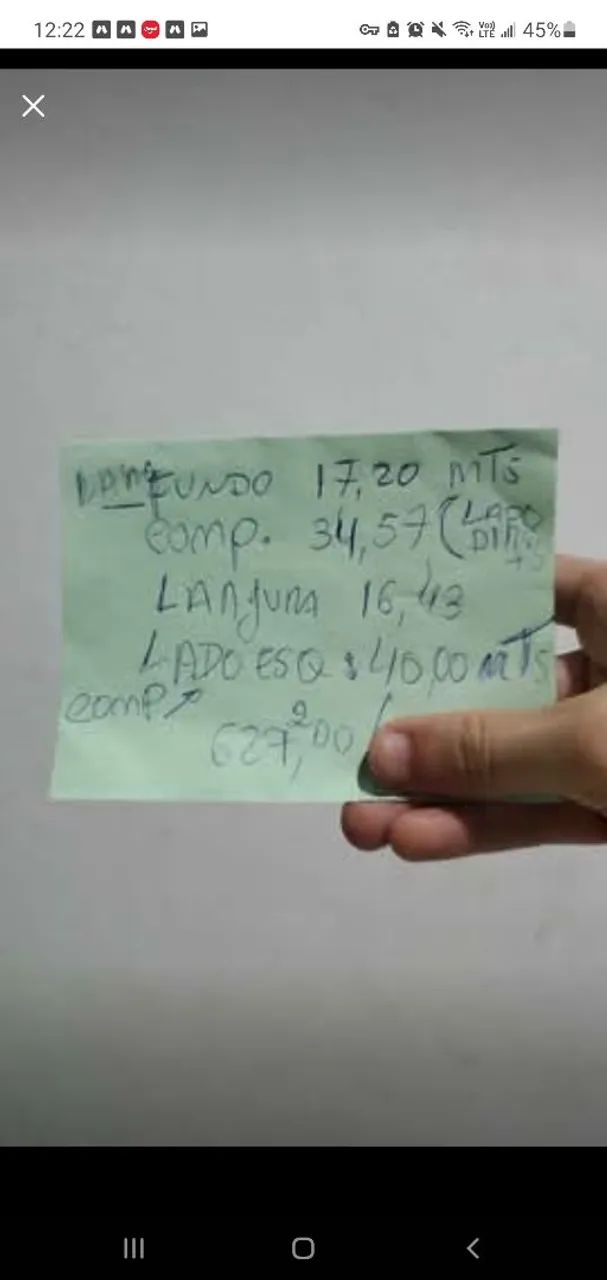 12:22 45%
VoJ) LTE
FUNDO 17,20 MTS
COMP. 34,57 (LADO DIR.
LARGURA 16,43
LADO ESQ 40,00 MTS
COMP
627,00
2